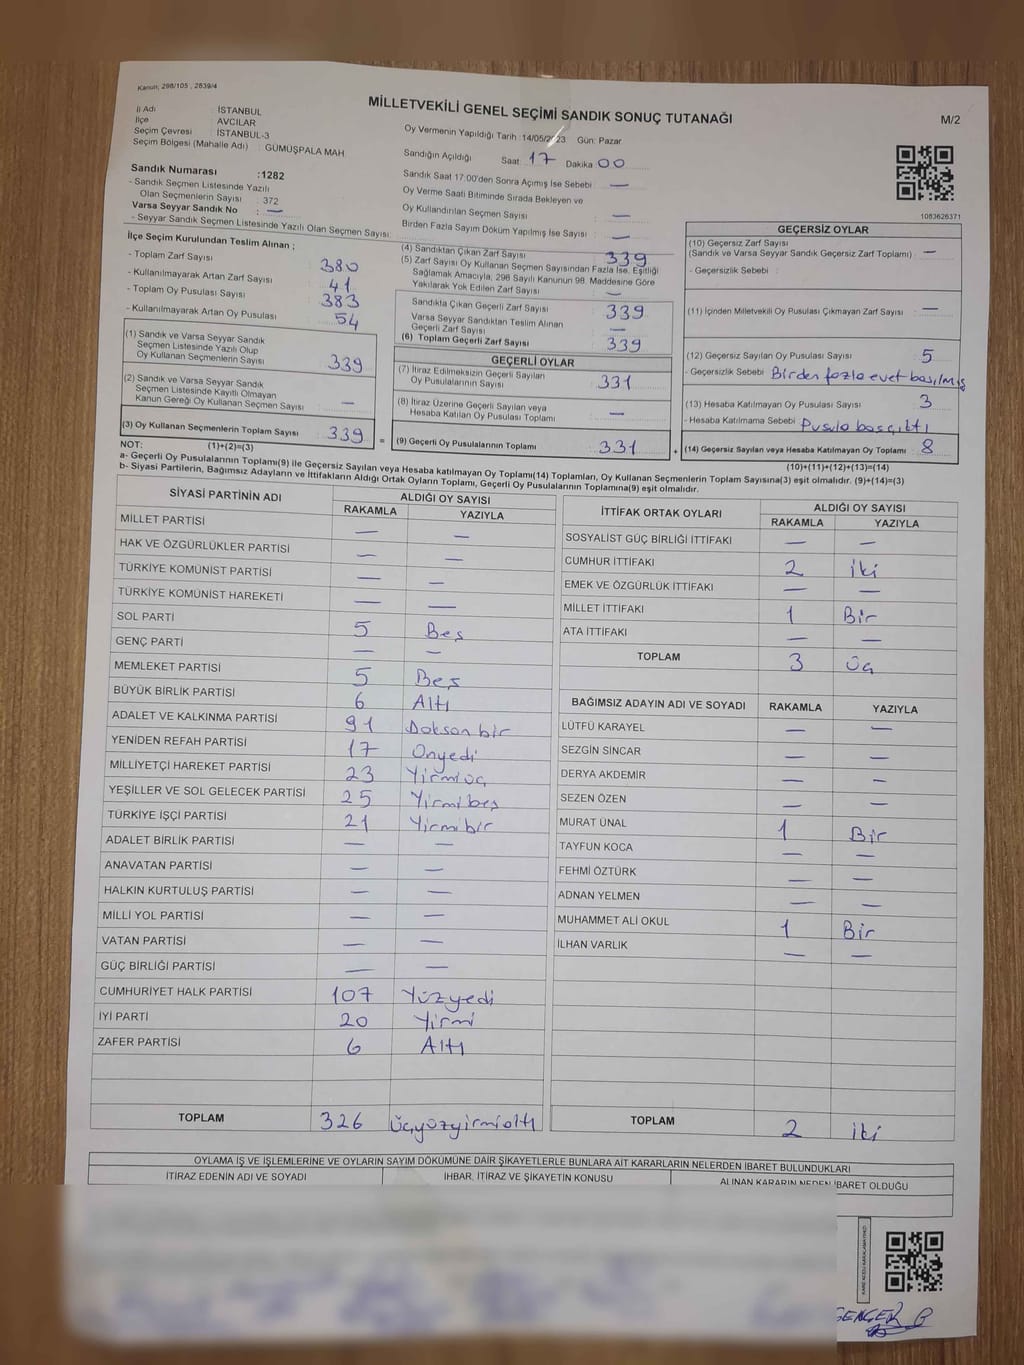 Kanun, 298/105 , 2839/4
MİLLETVEKİLİ GENEL SEÇİMİ SANDIK SONUÇ TUTANAĞI
M/2
İl Adı İSTANBUL
İlçe AVCILAR
Seçim Çevresi : İSTANBUL-3
Seçim Bölgesi (Mahalle Adı) : GÜMÜŞPALA MAH
Oy Vermenin Yapıldığı Tarih :14/05/2023 Gün: Pazar
Sandığın Açıldığı Saat 17 Dakika 00
Sandık Saat 17:00'den Sonra Açımış İse Sebebi : —
Oy Verme Saati Bitiminde Sırada Bekleyen ve
Oy Kullandırılan Seçmen Sayısı : —
Birden Fazla Sayım Döküm Yapılmış İse Sayısı : —
Sandık Numarası :1282
- Sandık Seçmen Listesinde Yazılı
Olan Seçmenlerin Sayısı : 372
Varsa Seyyar Sandık No : —
- Seyyar Sandık Seçmen Listesinde Yazılı Olan Seçmen Sayısı:
1083626371
İlçe Seçim Kurulundan Teslim Alınan ;
- Toplam Zarf Sayısı : 380
- Kullanılmayarak Artan Zarf Sayısı : 41
- Toplam Oy Pusulası Sayısı : 383
- Kullanılmayarak Artan Oy Pusulası : 54
(1) Sandık ve Varsa Seyyar Sandık
Seçmen Listesinde Yazılı Olup
Oy Kullanan Seçmenlerin Sayısı : 339
(2) Sandık ve Varsa Seyyar Sandık
Seçmen Listesinde Kayıtlı Olmayan
Kanun Gereği Oy Kullanan Seçmen Sayısı : —
(3) Oy Kullanan Seçmenlerin Toplam Sayısı : 339
(4) Sandıktan Çıkan Zarf Sayısı : 339
(5) Zarf Sayısı Oy Kullanan Seçmen Sayısından Fazla İse, Eşitliği
Sağlamak Amacıyla, 298 Sayılı Kanunun 98. Maddesine Göre
Yakılarak Yok Edilen Zarf Sayısı : —
Sandıkta Çıkan Geçerli Zarf Sayısı : 339
Varsa Seyyar Sandıktan Teslim Alınan
Geçerli Zarf Sayısı : —
(6) Toplam Geçerli Zarf Sayısı : 339
GEÇERLİ OYLAR
(7) İtiraz Edilmeksizin Geçerli Sayılan
Oy Pusulalarının Sayısı : 331
(8) İtiraz Üzerine Geçerli Sayılan veya
Hesaba Katılan Oy Pusulası Toplamı : —
= (9) Geçerli Oy Pusulalarının Toplamı : 331
GEÇERSİZ OYLAR
(10) Geçersiz Zarf Sayısı
(Sandık ve Varsa Seyyar Sandık Geçersiz Zarf Toplamı) : —
- Geçersizlik Sebebi :
(11) İçinden Milletvekili Oy Pusulası Çıkmayan Zarf Sayısı : —
(12) Geçersiz Sayılan Oy Pusulası Sayısı : 5
- Geçersizlik Sebebi : Birden fazla evet basılmış
(13) Hesaba Katılmayan Oy Pusulası Sayısı : 3
- Hesaba Katılmama Sebebi :
+ (14) Geçersiz Sayılan veya Hesaba Katılmayan Oy Toplamı : 8
NOT: (1)+(2)=(3)
(10)+(11)+(12)+(13)=(14)
a- Geçerli Oy Pusulalarının Toplamı(9) ile Geçersiz Sayılan veya Hesaba katılmayan Oy Toplamı(14) Toplamları, Oy Kullanan Seçmenlerin Toplam Sayısına(3) eşit olmalıdır. (9)+(14)=(3)
b- Siyasi Partilerin, Bağımsız Adayların ve İttifakların Aldığı Ortak Oyların Toplamı, Geçerli Oy Pusulalarının Toplamına(9) eşit olmalıdır.
SİYASİ PARTİNİN ADI ALDIĞI OY SAYISI
RAKAMLA YAZIYLA
MİLLET PARTİSİ — —
HAK VE ÖZGÜRLÜKLER PARTİSİ — —
TÜRKİYE KOMÜNİST PARTİSİ — —
TÜRKİYE KOMÜNİST HAREKETİ — —
SOL PARTİ 5 Beş
GENÇ PARTİ — —
MEMLEKET PARTİSİ 5 Beş
BÜYÜK BİRLİK PARTİSİ 6 Altı
ADALET VE KALKINMA PARTİSİ 91 Doksan bir
YENİDEN REFAH PARTİSİ 17 Onyedi
MİLLİYETÇİ HAREKET PARTİSİ 23 Yirmi üç
YEŞİLLER VE SOL GELECEK PARTİSİ 25 Yirmi beş
TÜRKİYE İŞÇİ PARTİSİ 21 Yirmi bir
ADALET BİRLİK PARTİSİ — —
ANAVATAN PARTİSİ — —
HALKIN KURTULUŞ PARTİSİ — —
MİLLİ YOL PARTİSİ — —
VATAN PARTİSİ — —
GÜÇ BİRLİĞİ PARTİSİ — —
CUMHURİYET HALK PARTİSİ 107 Yüzyedi
İYİ PARTİ 20 Yirmi
ZAFER PARTİSİ 6 Altı
TOPLAM 326 Üçyüzyirmialtı
İTTİFAK ORTAK OYLARI ALDIĞI OY SAYISI
RAKAMLA YAZIYLA
SOSYALİST GÜÇ BİRLİĞİ İTTİFAKI — —
CUMHUR İTTİFAKI 2 İki
EMEK VE ÖZGÜRLÜK İTTİFAKI — —
MİLLET İTTİFAKI 1 Bir
ATA İTTİFAKI — —
TOPLAM 3 Üç
BAĞIMSIZ ADAYIN ADI VE SOYADI RAKAMLA YAZIYLA
LÜTFÜ KARAYEL — —
SEZGİN SİNCAR — —
DERYA AKDEMİR — —
SEZEN ÖZEN — —
MURAT ÜNAL 1 Bir
TAYFUN KOCA — —
FEHMİ ÖZTÜRK — —
ADNAN YELMEN — —
MUHAMMET ALİ OKUL 1 Bir
İLHAN VARLIK — —
TOPLAM 2 İki
OYLAMA İŞ VE İŞLEMLERİNE VE OYLARIN SAYIM DÖKÜMÜNE DAİR ŞİKAYETLERLE BUNLARA AİT KARARLARIN NELERDEN İBARET BULUNDUKLARI
İTİRAZ EDENİN ADI VE SOYADI İHBAR, İTİRAZ VE ŞİKAYETİN KONUSU ALINAN KARARIN NEDEN İBARET OLDUĞU